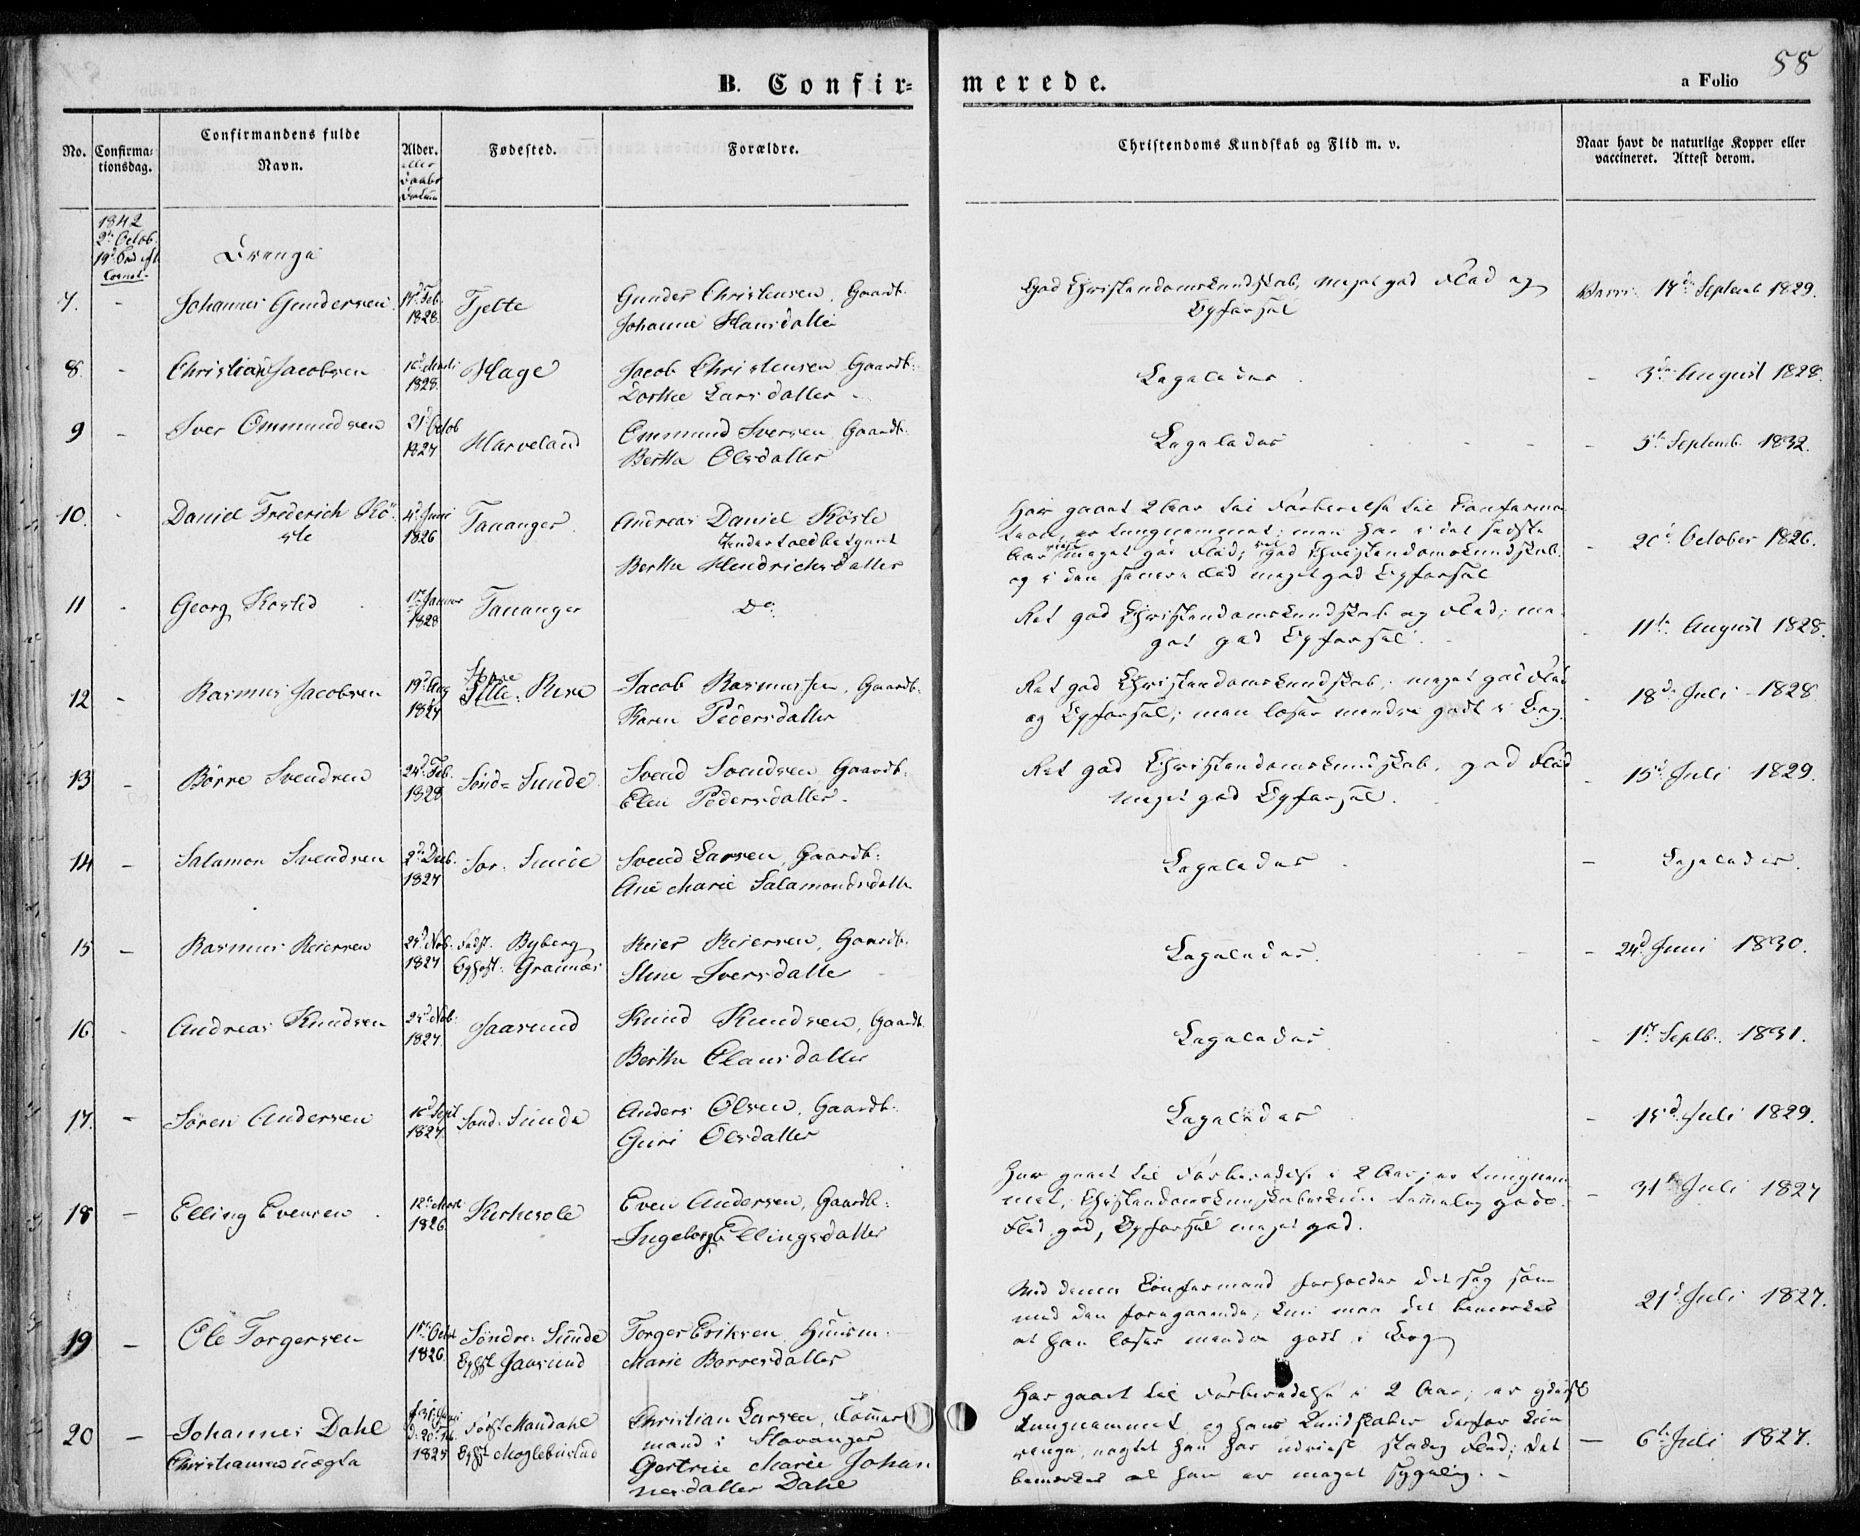 88
B. Confir=
merede.
a Folio
No.
Confirma-
tionsdag.
Confirmandens fulde
Navn.
Alder.
eller
Daabs
Datum
Fødested.
Forældre.
Christendoms Kundskab og Flid m. v.
Naar havt de naturlige Kopper eller
vaccineret. Attest derom.
1842
2den Octob.
19d
Drenge
7. - Johannes Gundersen
17d Feb.
1828
Tjelte
Gunder Christensen, Gaardb.
Johanne Hansdatter
God Christendomskundskab, meget god Flid og
Opførsel
Vacc. 14de Septemb 1829.
8. - Christian Jacobsen
1828.
Hage
Jacob Christensen Gaardb:
Dorthe Larsdatter
Ligeledes
- 3die August 1828.
9 - Iver Ommundsen
21d Octob
1827
Harveland
Ommund Iversen Gaardb.
Bertha Olsdatter
Ligeledes
- 5te Septemb. 1832.
10. - Daniel Frederich Kö-
ste
4d Juni
1826
Tananger
Andreas Daniel Köste
Bertha Hendrichsdatter
Har gaaet 2 Aar til Forberedelse til Confirma-
tion, er tungnemmet; men har i det sidste
Aar viist meget god Flid; god Christendomskundskab.
og i den senere Tid meget god Opførsel
- 20d October 1826.
11 - Georg
Januar
1828
Tananger
Do.
Ret god Christendomskundskab og Flid; me-
get god Opførsel.
- 11te August 1828.
12 - Rasmus Jacobsen
19d Aug
1827
Rege
Jacob Rasmussen, Gaardb.
Karen Pedersdatter
Ret god Christendomskundskab, meget god Flid
og Opførsel; men læser mindre godt i Bog.
- 18de Juli 1828
13 - Börre Svendsen
24d Feb.
1828
Sönd= Sunde
Svend Svendsen, Gaardb.
Elen Pedersdatter.
Ret god Christendomskundskab, god Flid
meget god Opførsel.
- 15d Juli 1829.
14 - Salamon Svendsen
2d Decb.
1827
Sör. Sunde
Svend Larsen, Gaardb:
Ane Marie Salamondsdatter
Ligeledes
- Ligeledes.
15 - Rasmus Reiersen
25d Nob.
1827
Födst. Byberg
Ophst. Grannæs
Reier Reiersen, Gaardb.
Stine Iversdatter
Ligeledes.
- 24d Juni 1830.
16. - Andreas Knudsen
25d Nob.
1827.
Jaasund
Knud Knudsen, Gaardb.
Bertha Olausdatter
Ligeledes
- 1st Septb. 1831.
17. - Sören Andersen
16d Sept
1827.
Sönd. Sunde
Anders Olsen, Gaardb.
Guri Olsdatter
Ligeledes
- 15d Juli 1829.
18 - Elling Evensen
12te
1826.
Kirkesole
Even Andersen, Gaardb:
Ingeborg Ellingsdatter
Har gaaet til Forberedelse i 2 Aar; er tungnem-
met; temmelig gode.
Flid god, Opførsel meget god.
- 31te Juli 1827
19 - Ole Torgersen
15de Octb
1826.
Söndre Sunde
Ophst Jaasund
Torger Eriksen, Huusm.
Marie Börresdatter
Med denne Confirmand forholder det sig som
med den foregaaende, kun maa det bemærkes
at han læser mindre godt i Bog
21d Juli 1827.
20 - Johannes Dahl
Christiansen
1825
Födst Mandahl
Ophst
Christian Larsen, Tömmer
mand i Stavanger
Gertrue Marie Johan
nesdatter Dahl
Har gaaet til Forberedelse i 2 Aar; er yderst
tungnemmet og hans Kundskaber derfor kun
ringe, uagtet han har udviist stadig Flid; det
bemærkes at han er meget sygelig.
- 6te Juli 1827.